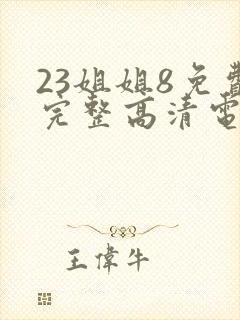 23姐姐8免費
完整高清電
王偉牛